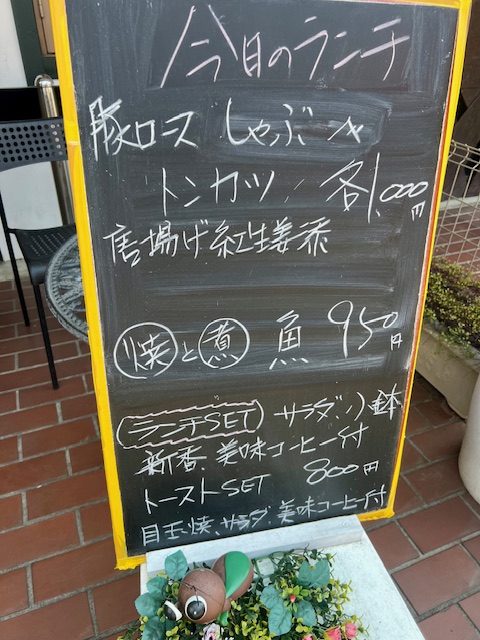 今日のランチ
豚ロース しゃぶ
トンカツ 各1,000円
唐揚げ紅生姜添
焼と煮 魚 950円
ランチSET サラダ、小鉢
新香、美味コーヒー付
トーストSET 800円
目玉焼、サラダ、美味コーヒー付